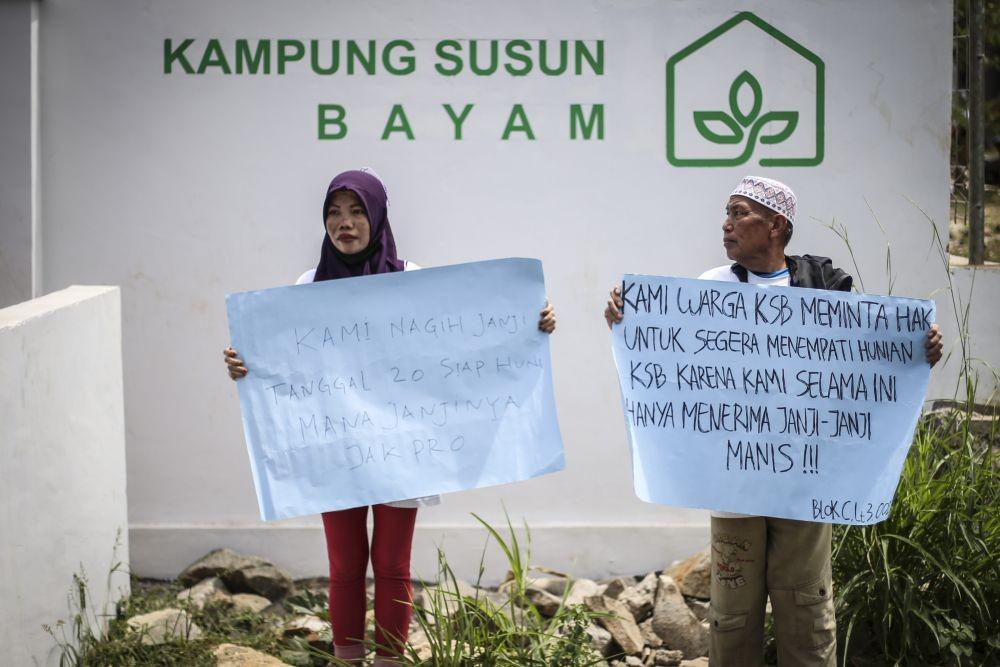 KAMPUNG SUSUN
BAYAM
KAMI NAGIH JANJI
TANGGAL 20 SIAP HUNI
MANA JANJINYA
JAK PRO
KAMI WARGA KSB MEMINTA HAK
UNTUK SEGERA MENEMPATI HUNIAN
KSB KARENA KAMI SELAMA INI
HANYA MENERIMA JANJI-JANJI
MANIS !!!
BLOK C, Lt 3.